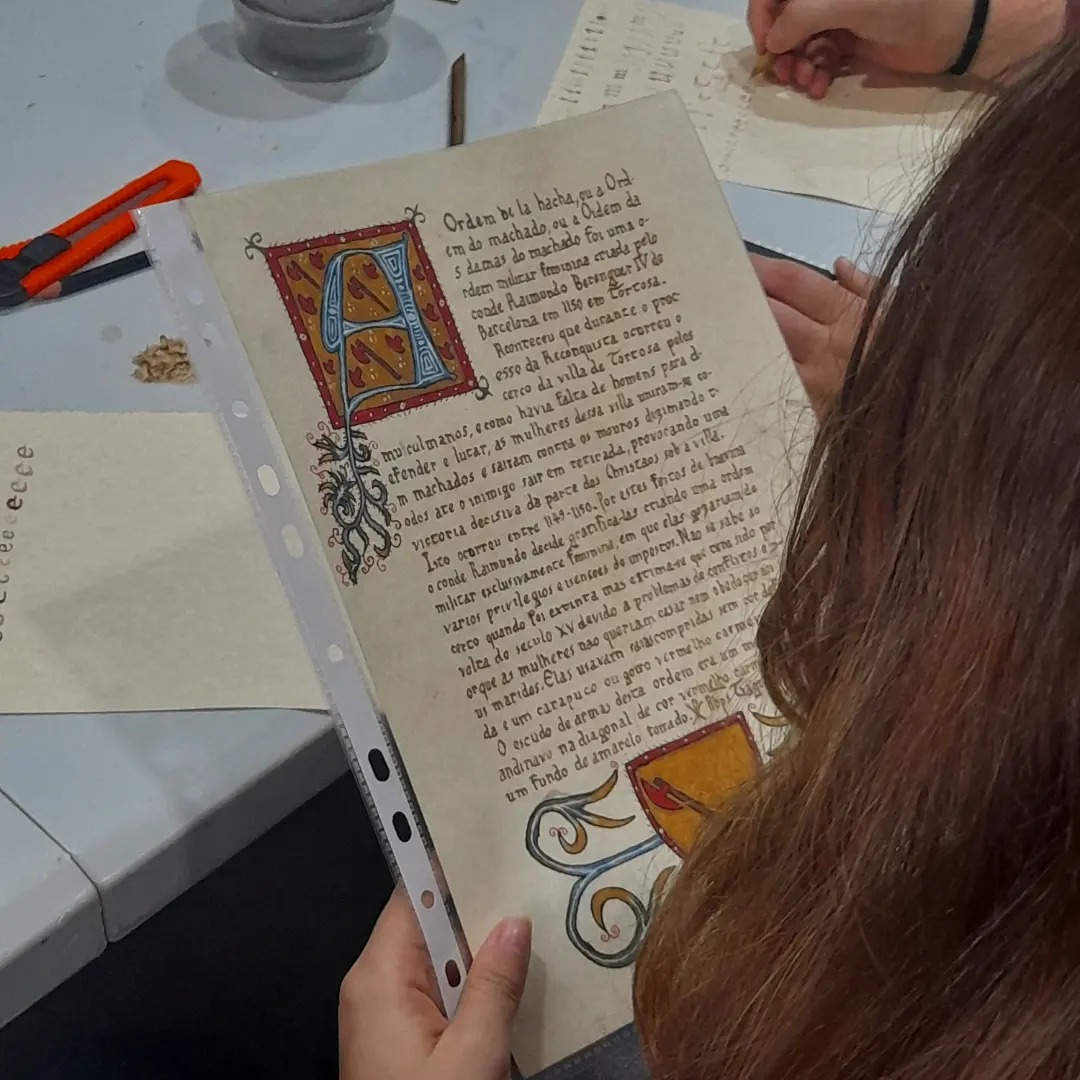 A
Ordem de la hacha, ou a Ord-
em do machado, ou a Oidem da
s damas do machado foi uma o-
rdem militar feminina criada pelo
conde Raimundo Berenguer IV de
Barcelona em 1150 em Tortosa.
Aconteceu que durante o proc
esso da Reconquista ocorreu o
cerco da villa de Tortosa pelos
mulculmanos, e como havia falta de homens para d-
efender e lutar, as mulheres dessa villa muram-se co-
m machados e sairam contra os mouros dizimando t-
odos ate o inimigo sair em retirada, provocando uma
victoria decisiva da parte dos Christaos sob a villa.
Isto ocorreu entre 1149-1150. Por estes feitos de bravura
o conde Raimundo decide gratifica-las criando uma ordem
militar exclusivamente feminina, em que elas gozariam de
varios privilegios e isensoes de impostos. Nao se sabe ao
certo quando foi extinta mas estima-se que tena sido por
volta do seculo XV devido a problemas de conflitos e
orque as mulheres nao queriam casar nem obedecer aos
us maridos. Elas usavam saias compridas sem cor de
da e um carapuco ou gorro vermelho carme
O escudo de armas desta ordem era um m
andinavo na diagonal de cor vermelho carm
um fundo de amarelo torrado.
m m
eeeeee